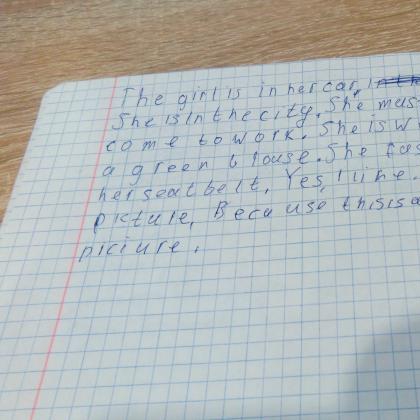 The girl is in her car,
She is in the city. She mus
come to work. She is w
a green blouse. She fas
her seat belt, Yes, I like.
picture, Because this is a
piciure.